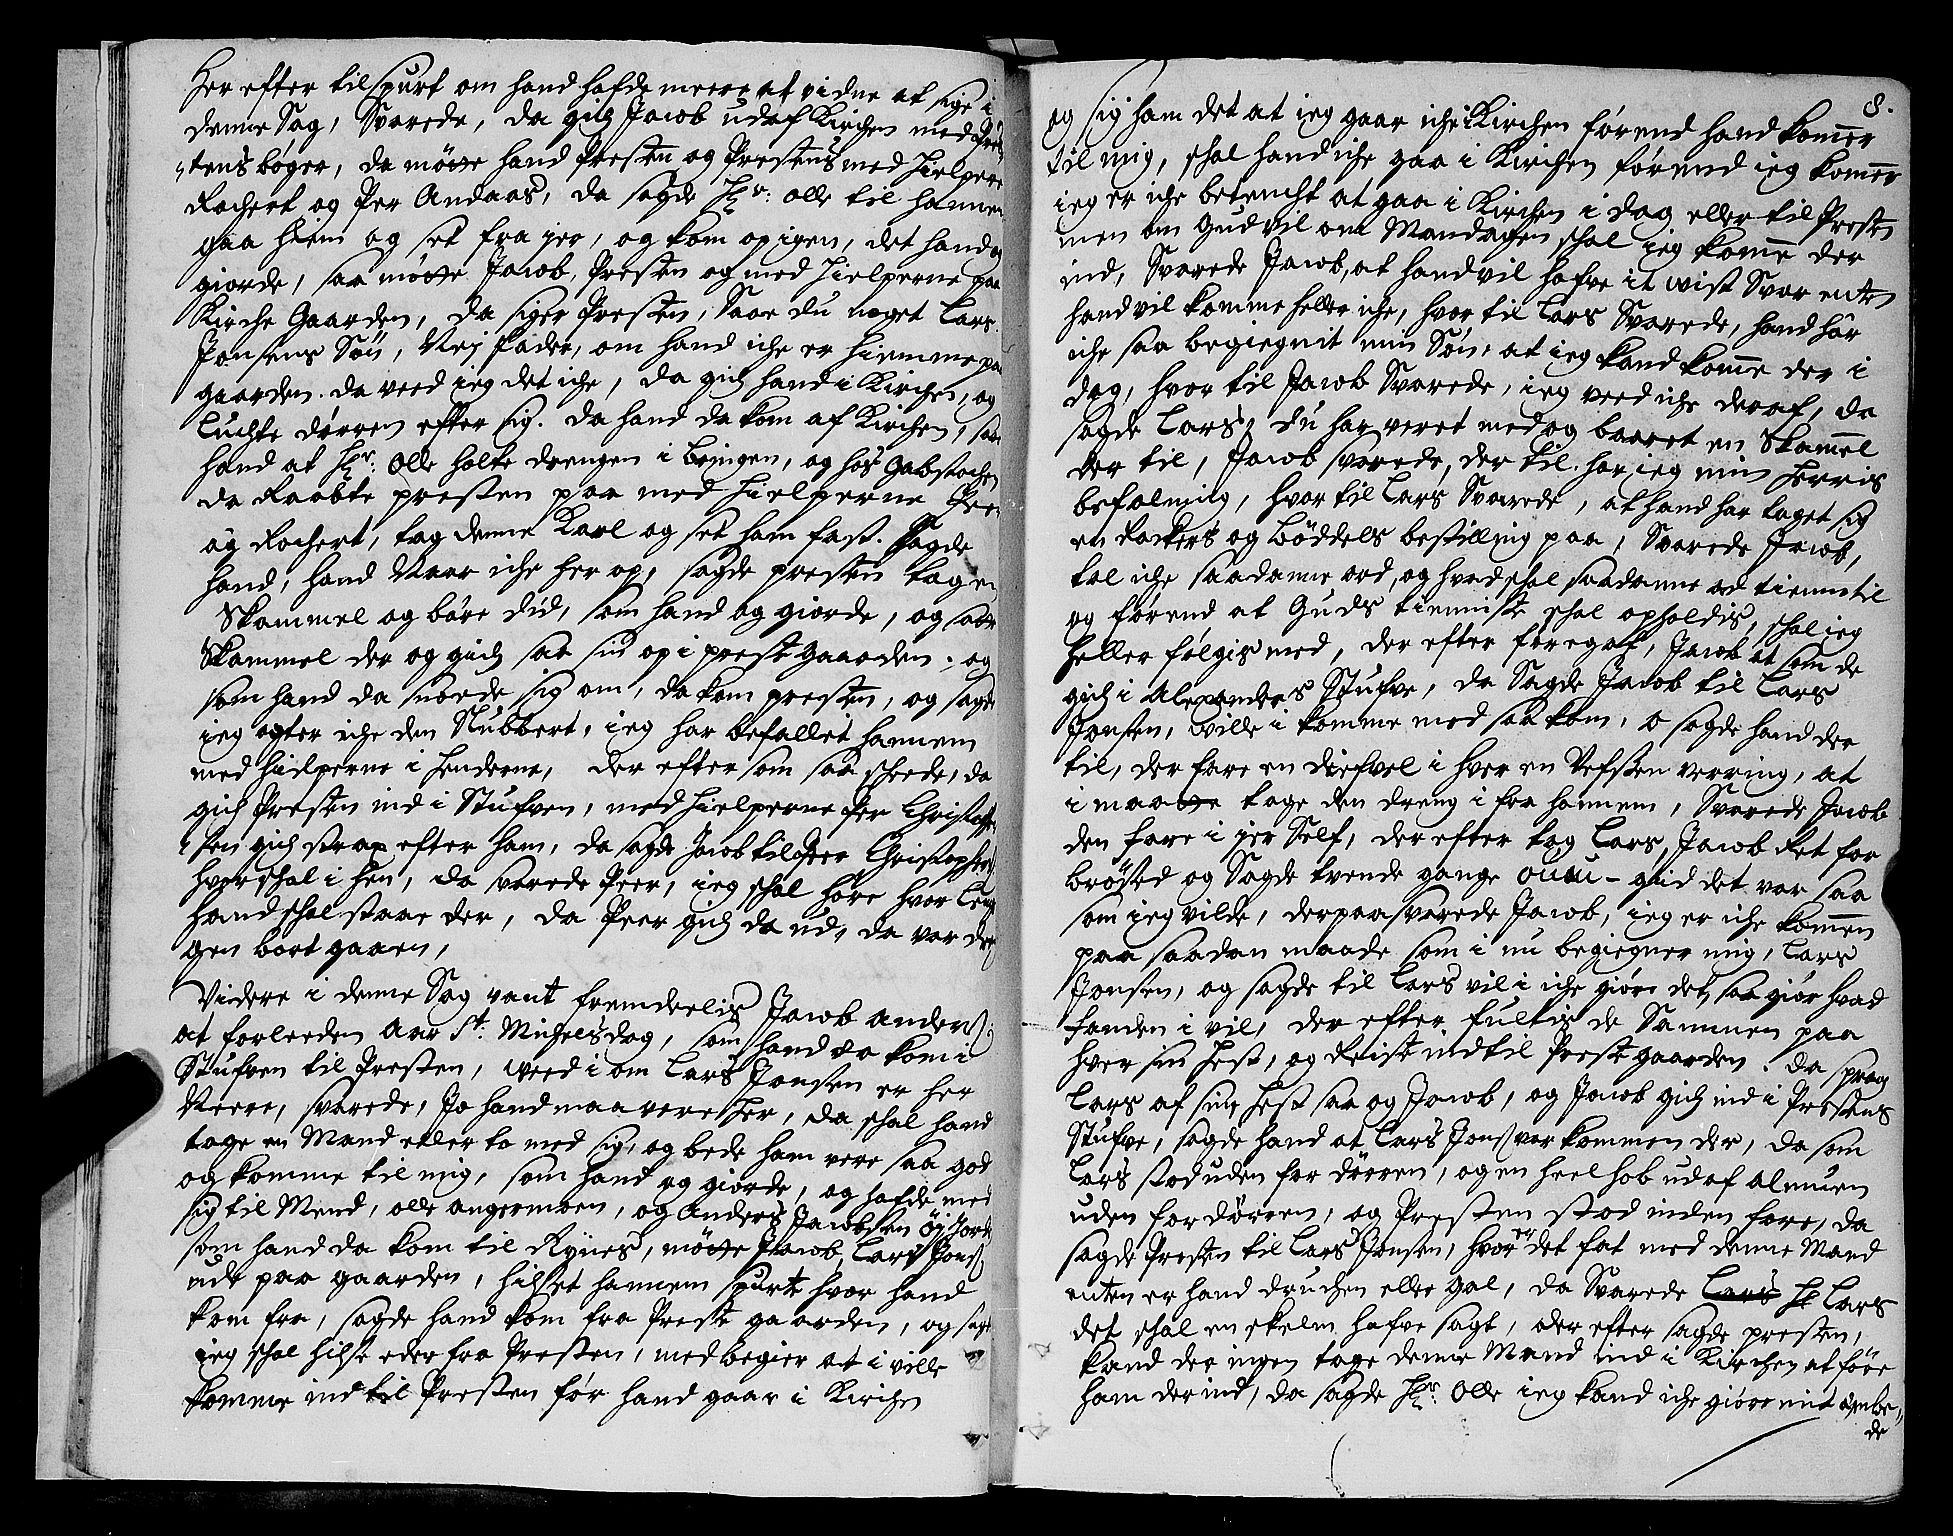 Her efter tilspurt om hand hafde meere at vidne at sige i
denne Sag, Svarede, da gich Jacob udaf Kirchen med Pre-
stens bøger, da møtte hand Presten og Prestens med hielpere
Rochert og Per Andaas, da sagde Hr: olle til hannem
gaa hiem og set fra jer, og kom op igen, det hand og
giorde, saa møtte Jacob, Presten og med hielperne paa
Kirche Gaarden, da siger Presten, Saae du noget Lars
Jonsens Søn, Nej fader, om hand iche er hiemme paa
gaarden da veed ieg det iche, da gich hand i Kirchen, og
Luchte dørren efter sig. da hand da kom af Kirchen, saa
hand at Hr: Olle holte drengen i Bringen, og hos gabstochen
da Raabte presten paa med hielperne Peer
og Rochert, tag denne Karl og set ham fast. Sagde
hand, hand Naar iche her op, sagde presten tag en
Skammel og bære did, som hand og giorde, og satte
Skammel der og gich saa sin op i prestgaarden. og
som hand da snoede sig om, da kom presten, og sagde
ieg agter iche den Slubbert, ieg har befallet hannem
med hielperne i henderne, der efter som saa scheede, da
gich Presten ind i Stufven, med hielperne Per Christoffe-
sen gich strax efter ham, da sagde Jacob til Peer Christophersen
hvor schal i hen, da svarede Peer, ieg schal høre hvor leng
hand schal staae der, da Peer gich da ud, da var dren
gen bort gaaen,
Videre i denne Sag vant fremdeelis Jacob Anders
at forleeden Aar St: Michelsdag, som hand da kom i
Stufven til Presten, veed i om Lars Jonsen er her
Neere, svarede, Jo hand maa vere her, da schal hand
tage en Mand eller to med sig, og bede ham vere saa god
og komme til mig, som hand og giorde, og hafde med
sig til Mend, olle angermoen, og Anders Jacobsen Øijord
som hand da kom til Rynes, møtte Jacob Lars Jons
ude paa gaarden, hilset hannem spurte hvor hand
kom fra, sagde hand kom fra Preste gaarden, og sagde
ieg schal hilse eder fra Presten, med begier at i ville
komme ind til Presten før hand gaar i Kirchen
8.
og sig ham det at ieg gaar iche i Kirchen førend hand kommer
til mig, schal hand iche gaa i Kirchen førend ieg kommer
ieg er iche betencht at gaa i Kirchen i dag eller til Presten
men om Gud vil om Mandagen schal ieg komme der
ind, Svarede Jacob, at hand vil hafve it wist Svar enten
hand vil komme heller iche, hvor til Lars Svarede, hand har
iche saa begiegnit min Søn, at ieg kand komme der i
dag, hvor til Jacob Svarede, ieg veed iche deraf, da
sagde Lars, du har veret med og baaret en Skammel
der til, Jacob svarede, der til har ieg min herris
befalning, hvor til Lars Svarede, at hand har taget sig
en Rackers og Bøddels bestilling paa, Svarede Jacob,
tal iche saadanne ord, og hvad schal saadanne ord tienne til
og førend at Guds tienniste schal opholdis, schal ieg
heller følgis med, der efter foregaf, Jacob at som de
gich i Alexanders Stufve, da Sagde Jacob til Lars
Jonsen, wille i komme med saa kom, o sagde hand der
til, der fare en diefvel i hver en Vefsten verring, at
i maatte tage den dreng i fra hannem, Svarede Jacob
den fare i jer Self, der efter tog Lars, Jacob Ret for
brøsted og Sagde tvende gange ouuu - gud det var saa
som ieg vilde, derpaa svarede Jacob, ieg er iche kommen
paa saadan maade som i nu begiegner mig, Lars
Jonsen, og sagde til Lars vil i iche giøre det, saa giør hvad
fanden i vil, der efter fultis de Sammen paa
hver sin hest, og Reiste ind til Prestgaarden. da sprang
Lars af sin hest saa og Jacob, og Jacob gich ind i Prestens
Stufve, sagde hand at Lars Jons var kommen der, da som
Lars stod uden for dørren, og en heel hob udaf almuen
uden for dørren, og Presten stod inden fore, da
sagde Presten til Lars Jonsen, hvor er det fat med denne Mand
enten er hand druchen eller gal, da Svarede Lars Hr Lars
det schal en skelm hafve sagt, der efter sagde presten,
kand der ingen tage denne Mand ind i Kirchen at føre
ham der ind, da sagde Hr: Olle ieg kand iche giøre mit embe-
de